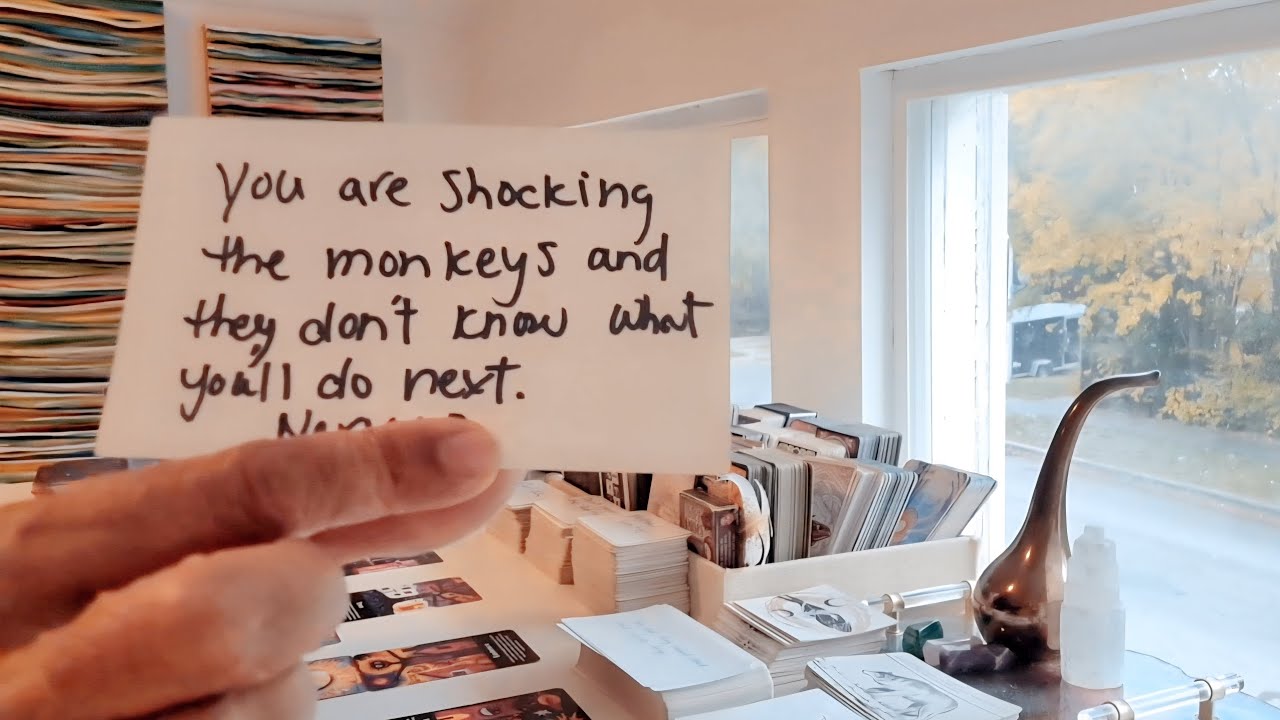 You are shocking
the monkeys and
they don't know what
you'll do next.